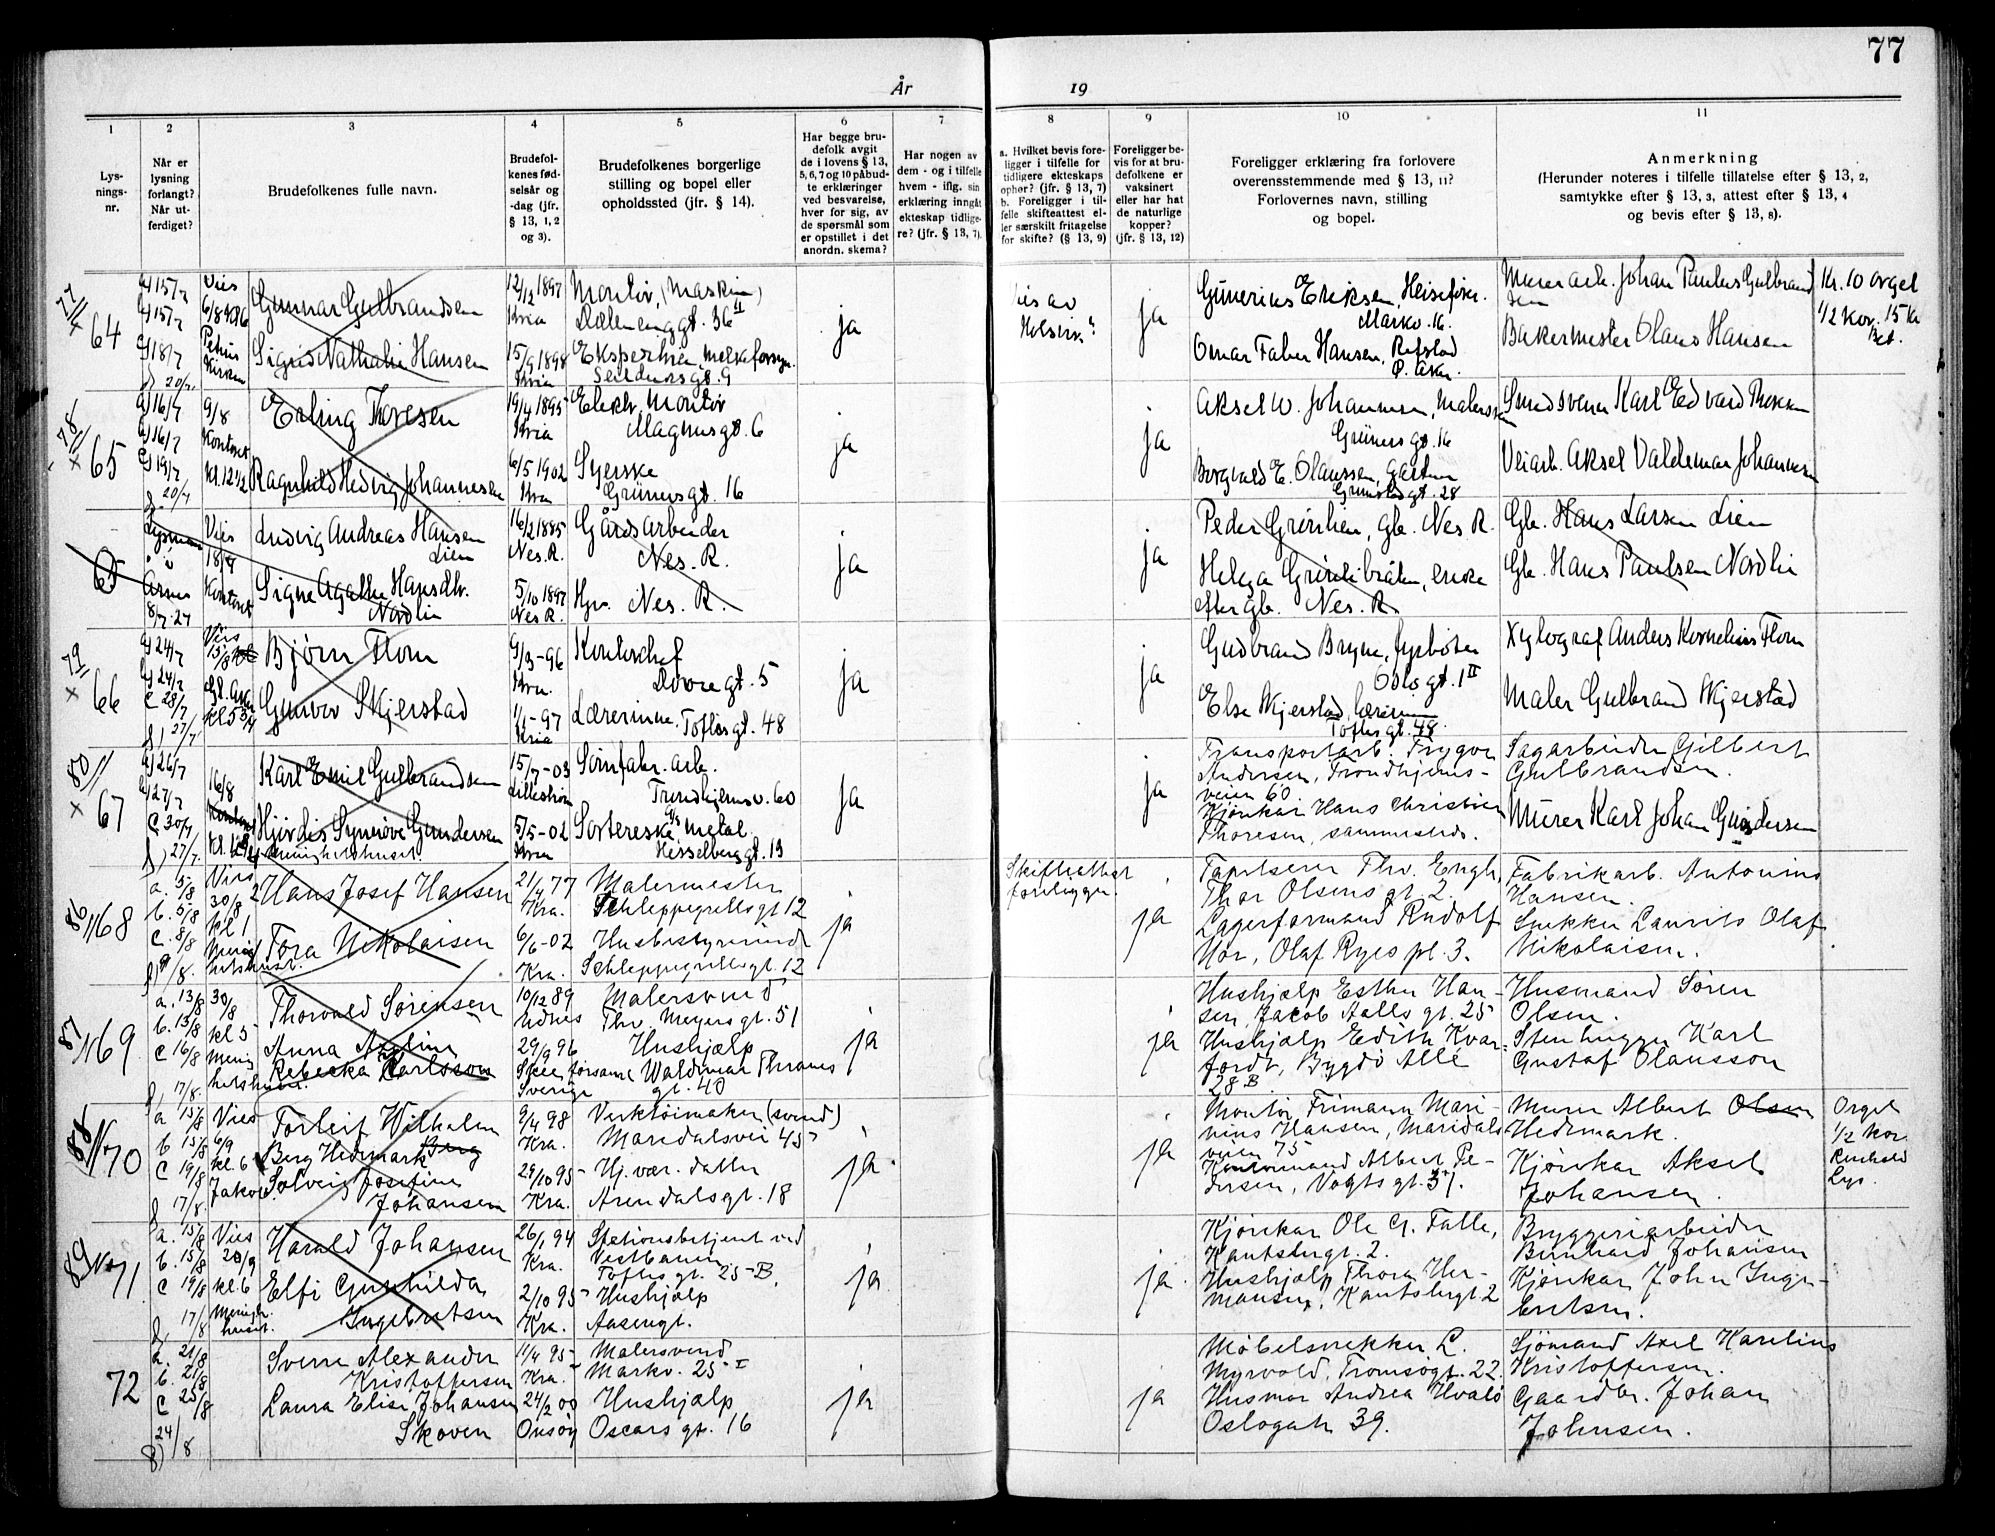 77
År
19
1
Lys-
nings-
nr.
2
Når er
lysning
forlangt?
Når ut-
ferdiget?
3
Brudefolkenes fulle navn.
4
Brudefol-
kenes fød-
selsår og
-dag (jfr.
§ 13, 1, 2
og 3).
5
Brudefolkenes borgerlige
stilling og bopel eller
opholdssted (jfr. § 14).
6
Har begge bru-
defolk avgit
de i lovens § 13,
5, 6, 7 og 10 påbud-
te erklæringer
ved besvarelse,
hver for sig, av
de spørsmål som
er opstillet i det
anordn. skema?
7
Har nogen av
dem - og i tilfelle
hvem - iflg. sin
erklæring inngåt
ekteskap tidlige-
re? (jfr. § 13, 7).
8
a. Hvilket bevis fore-
ligger i tilfelle for
tidligere ekteskaps
ophør? (jfr. § 13, 7)
b. Foreligger i til-
felle skifteattest el-
ler særskilt fritagelse
for skifte? (§ 13, 9)
9
Foreligger be-
vis for at bru-
defolkene er
vaksinert
eller har hat
de naturlige
kopper?
(jfr. § 13, 12)
10
Foreligger erklæring fra forlovere
overensstemmende med § 13, 11?
Forlovernes navn, stilling
og bopel.
11
Anmerkning
(Herunder noteres i tilfelle tillatelse efter § 13, 2,
samtykke efter § 13, 3, attest efter § 13, 4
og bevis efter § 13, 8).
77
64
a) 15/7
b) 15/7
c) 18/7
d) 20/7
Vies
6/8 kl 6
Petrus
Kirken
Gunnar Gulbrandsen
Sigrid Nathalie Hansen
12/12 1897
Kria
15/9 1898
Kria
Montör, (Maskin)
Dælenenggt. 36 II
Ekspeditrice Melkeforsyn.
Seildugsgt. 9
ja
ja
Gunerius Eriksen, Heisefører.
Markv. 16.
Omar Faber Hansen, Refstad
Ø. Aker.
Murerarb. Johan Paulus Gulbrand
sen
Bakermester Olaus Hansen
Kr. 10 orgel
1/2 Kor. 15 kr
Bet.
78
x 65
a) 16/7
b) 16/7
c) 19/7
d. 20/7
9/8
Kontoret
kl. 12 1/2
Erling Thoresen
Ragnhild Hedvig Johannesen
19/4 1895
Kria
6/5 1902
Kria
Elektr. Montör
Magnusgt. 6
Syerske
Grünersgt. 16
ja
ja
Aksel W. Johannesen, Malersv
Grünersgt 16
Borgvald E. Olaussen, Gartner
Grimstadgt. 28
Smedsvenn Karl Edvard Thoresen
Veiarb. Aksel Valdemar Johannesen
65
Lysning
Årnes
8/7-27
Vies
18/7
Kontoret
Ludvig Andreas Hansen
Lien
Signe Agathe Hansdtr.
Nordlie
16/2 1885
Nes. R.
5/10 1897
Nes R.
Gårdsarbeider
Nes. R.
Hjv. Nes. R.
ja
ja
Peder Grönlien, Gb. Nes R.
Helga Grinlibråten, enke
efter gb. Nes. R
Gb. Hans Larsen Lien
Gb. Hans Paulsen Nordlie
79
x 66
a) 24/7
b) 24/7
C 28/7
d) 27/7
Vies
15/8
Gl. Aker
kl 5 3/4
Bjørn Flom
Gunvor Skjerstad
9/3 -96
Kria.
1/1 -97
Kria
Kontorchef
Dovregt. 5
Lærerinne. Toftesgt. 48
ja
ja
Gudbrand Bryne, fyrböter
Oslogt. 1 II
Else Skjerstad, lærerinne
Toftesgt. 48.
Xylograf Anders Kornelius Flom
Maler Gulbrand Skjerstad
80
x 67
a) 26/7
b) 27/7
C 30/7
d) 27/7.
16/8
Kontoret
Menighetshuset.
Karl Emil Gulbrandsen
Hjördis Synnöve Gundersen
15/7 -03
Lilleström
5/5 -02
Kria
Sömfabr. arb.
Trondhjemsv. 60
Sorterske, Metal
Hesselberggt. 13
ja
ja
Transportarb. Trygve
Andersen, Trondhjems-
veien 60
Kjörekar Hans Christian
Thoresen, sammesteds.
Sagarbeider Gilbert
Gulbrandsen.
Murer Karl Johan Gundersen
86
68
a. 5/8
b. 5/8
C. 8/8
d) 9/8.
Vies
30/8
kl 1
Menig
hetshuset.
Hans Josef Hansen
Tora Nikolaisen
21/4 77
Kra.
6/6 -02
Kra.
Malermester
Schleppegrellsgt 12
Husbestyrerinde
Schleppegrellsgt. 12
ja
Skifteattest
foreligger.
ja
Tapetserer Thv. Engh,
Thor Olsensgt. 2.
Lagerformand Rudolf
Mör, Olaf Ryes pl. 3.
Fabrikarb. Antonius
Hansen.
Snekker Laurits Olaf
Nikolaisen.
87
69
a. 13/8
b. 13/8
C 16/8
d, 17/8.
30/8
kl 5
Menig
hetshuset.
Thorvald Sörensen
Anna Axeline
Rebecka Karlsson
10/12 89
Udnes
29/9 96
Skee församl.
Sverige
Malersvend
Thv. Meyersgt. 51
Hushjælp
Waldemar Thranes
gt. 40
ja
ja
Hushjælp Esther Han-
sen, Jacob Aallsgt. 25
Hushjælp Edith Kvar-
fordt, Bygdö Allé
28 B
Husmand Sören
Olsen.
Stenhugger Karl
Gustaf Olausson
88
70
a 15/8
b 15/8
C 19/8
d, 17/8.
Vies
6/9
kl. 6
Jakob.
Torleif Wilhelm
Berg Hedemark Berg
Solveig Josefine
Johansen
9/4 98
Kra.
29/10 95
Kra.
Verktöimaker (svend)
Maridalsvei 45
Hj.vær. datter
Arendalsgt. 18
ja
ja
Montör Frimann Mari-
nius Hansen, Maridals
veien 75
Kontormand Albert Pe-
dersen, Vogtsgt. 37.
Murer Albert Olsen
Hedemark.
Kjörekar Aksel
Johansen.
Orgel
1/2 kor
Lys.
89
71
a. 15/8
b. 15/8
C 19/8
d, 17/8
Vies
20/9
kl. 6
Menigh.
huset.
Harald Johansen
Elfi Gunhilda
Ingebretsen
26/1 94
Kra.
2/10 95
Kra.
Stationsbetjent ved
Vestbanen
Toftesgt. 25 B.
Hushjælp
Aasengt.
ja
ja
Kjörekar Ole G. Falle,
Kantslergt. 2.
Hushjælp Thora Her-
mansen, Kantslergt 2
Bryggeriarbeider
Bernhard Johansen
Kjörekar John Inge-
bretsen.
72
a. 21/8
b. 21/8
C 25/8
24/8
d)
Sverre Alexander
Kristoffersen
Laura Elise Johansen
Skoven
11/4 95
Kra.
24/2 00
Onsöy
Malersvend
Markv. 25 I
Hushjælp
Oscarsgt. 16
ja
ja
Möbelsnekker L.
Myrvold, Tromsögt. 22.
Husmor Andrea Hvalö
Oslogate 39.
Sjömand Axel Karelius
Kristoffersen.
Gaardbr. Johan
Johnsen.